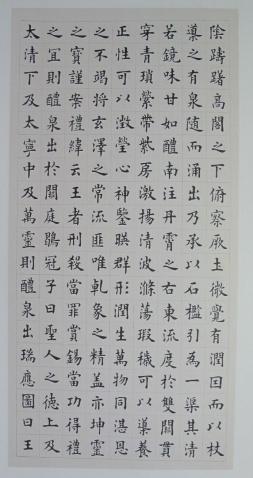 陰躊躇高閣之下俯察厥土微覺有潤因而以杖
導之有泉隨而涌出乃承以石檻引為一渠其清
若鏡味甘如醴南注丹霄之右東流度於雙闕貫
穿青瑣縈帶紫房激揚清波滌蕩瑕穢可以導養
正性可以澂瑩心神鑒暎群形潤生萬物同湛恩
之不竭將玄澤之常流匪唯乾象之精盖亦坤靈
之寳謹案禮緯云王者刑殺當罪賞錫當功得禮
之宜則醴泉出於闕庭鶡冠子曰聖人之德上及
太清下及太寧中及萬靈則醴泉出瑞應圖曰王